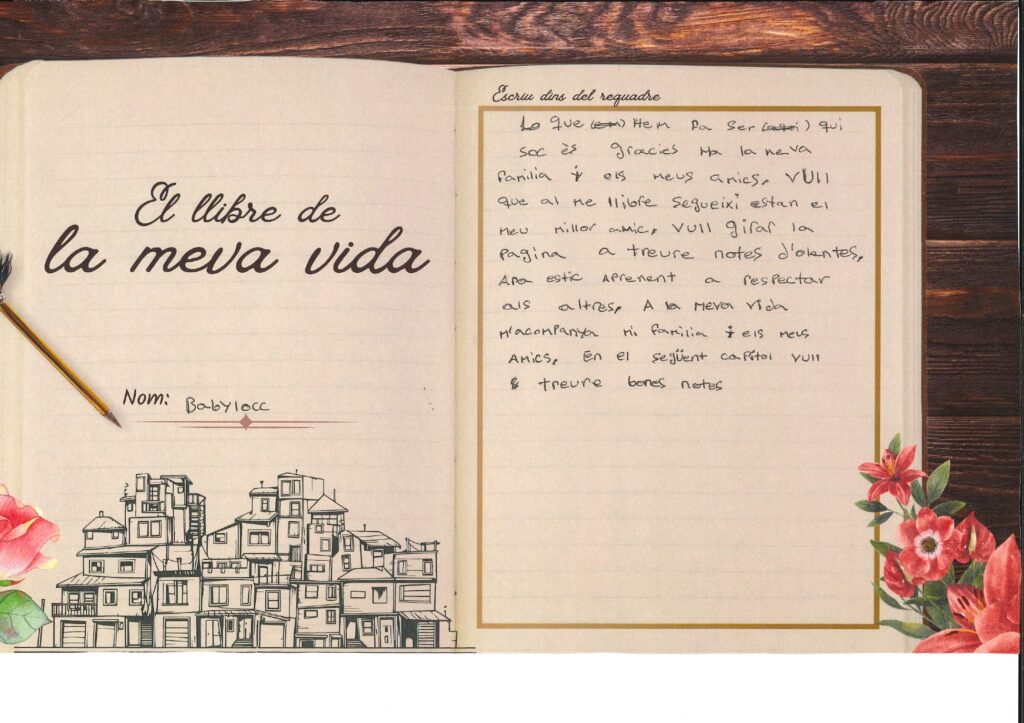 Escriu dins del requadre
Lo que (em) Hem Da ser (aqui) qui
soc ès gracies Ha la meva
familia i els meus amics, VUll
que al me llibre segueixi estan el
meu millor amic, VUll girar la
Pagina a treure notes d'olentes,
Ara estic Aprenent a respectar
als altres, A la Meva vida
M'acompanya mi familia i els meus
Amics, En el següent capítol vull
treure bones notes
El llibre de
la meva vida
Nom: Babylocc